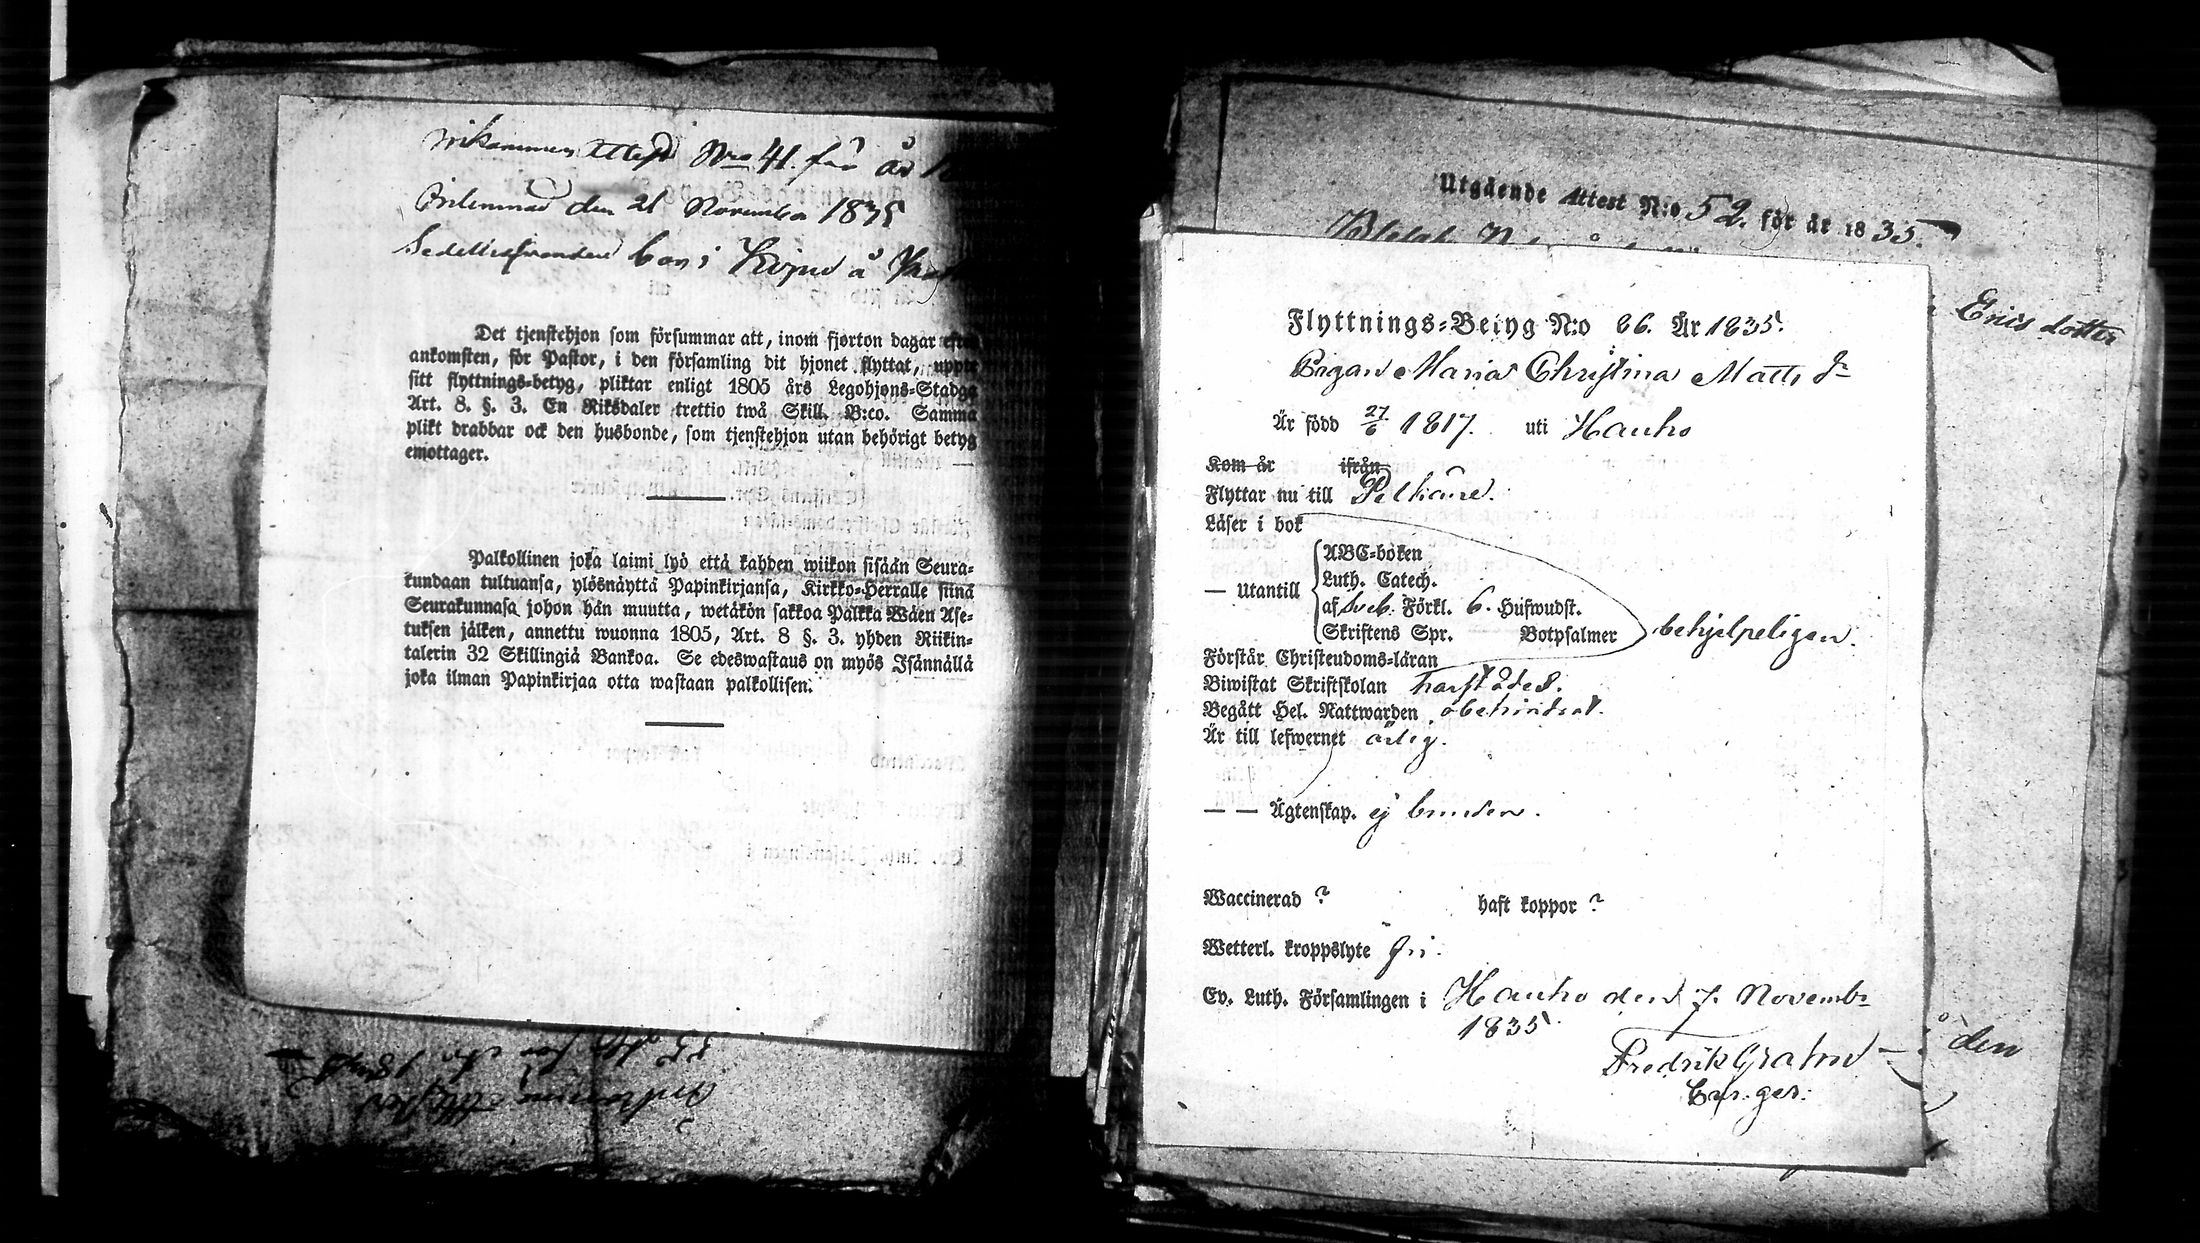 Inkommen Attest Nro 41. för år
Inlemnad den 21 November 1835
Sedelhafvanden bor i
Det tjenstehjon som försummar att, inom fjorton dagar efter
ankomsten, för Pastor, i den församling dit hjonet flyttat, uppte
sitt flyttnings-betyg, pliktar enligt 1805 års Legohjons-Stadga
Art. 8. §. 3. En Riksdaler trettio twå Skill. B:co. Samma
plikt drabbar ock den husbonde, som tjenstehjon utan behörigt betyg
emottager.
Palkollinen joka laimi lyö että kahden wiikon sisään Seura-
kundaan tultuansa, ylösnäyttä Papinkirjansa, Kirkko-Herralle siinä
Seurakunnasa johon hän muutta, wetäkön sakkoa Palkka Wäen Ase-
tuksen jälken, annettu wuonna 1805, Art. 8 §. 3. yhden Riikin-
talerin 32 Skillingiä Bankoa. Se edeswastaus on myös Isännällä
joka ilman Papinkirjaa otta wastaan palkollisen.
Inkommne Attester
Utgående Attest N:o 52. för år 1835.
Ericsdotter
Flyttnings-Betyg N:o 86. År 1835.
Pigan Maria Christina Matts dr
Är född 27/6 1817. uti Hauho
Kom år ifrån
Flyttar nu till Pelkäne.
Läser i bok
— Utantill
ABC-boken
Luth. Catech.
af Sveb. Förkl. 6. Hufwudst.
Skriftens Spr. Botpsalmer
behjelpeligen.
Förstår Christendoms-läran
Biwistat Skriftskolan
Begått Hel. Nattwarden obehindrat.
Är till lefwernet ärlig.
— — Ägtenskap. ej bunden.
Waccinerad ? haft koppor ?
Wetterl. kroppslyte fri.
Ev. Luth. Församlingen i Hauho den 7. Novembr
1835
Fredrik Grahn
den